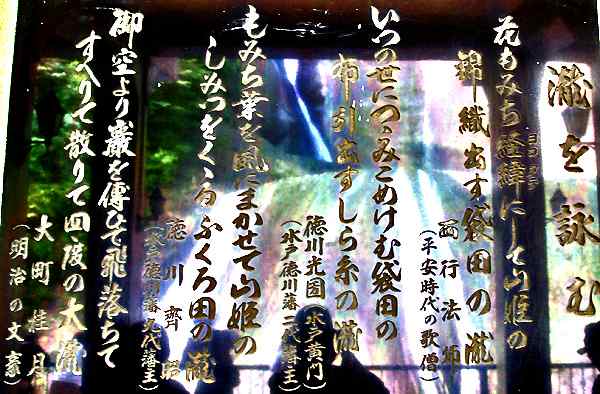 瀧を詠む
花もみち経緯にして山姫の
ヨコ タテ
錦織出す袋田の瀧
西行法師
(平安時代の歌僧)
いつの世につつみこめけむ袋田の
布引出すしら糸の瀧
徳川光圀 水戸黄門
(水戸徳川藩二代藩主)
もみち葉を風にまかせて山姫の
しみつをくくるふくろ田の瀧
徳川斉昭
(水戸徳川藩九代藩主)
御空より巌を傳ひて飛落ちて
すべりて散りて四度の大瀧
大町桂月
(明治の文豪)